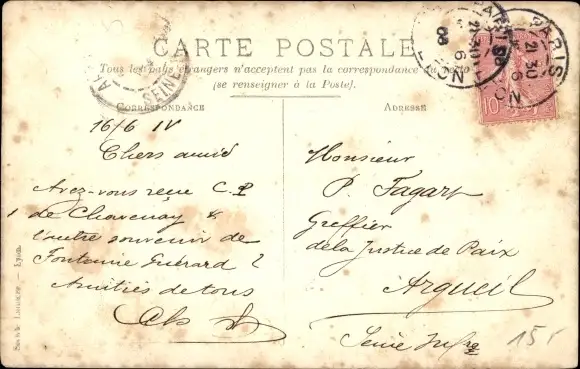 CARTE POSTALE
Tous les pays étrangers n'acceptent pas la correspondance au recto
(se renseigner à la Poste).
CORRESPONDANCE
ADRESSE
PARIS
21 30
SEINE
10
16/6 IV
Chers amis
Avez-vous reçu C.P
de Chavenay &
l'autre souvenir de
Fontaine Guérard ?
Amitiés de tous
Monsieur
P. Fagart
Greffier
de la Justice de Paix
Argueil
Seine Infre
15
Lyon